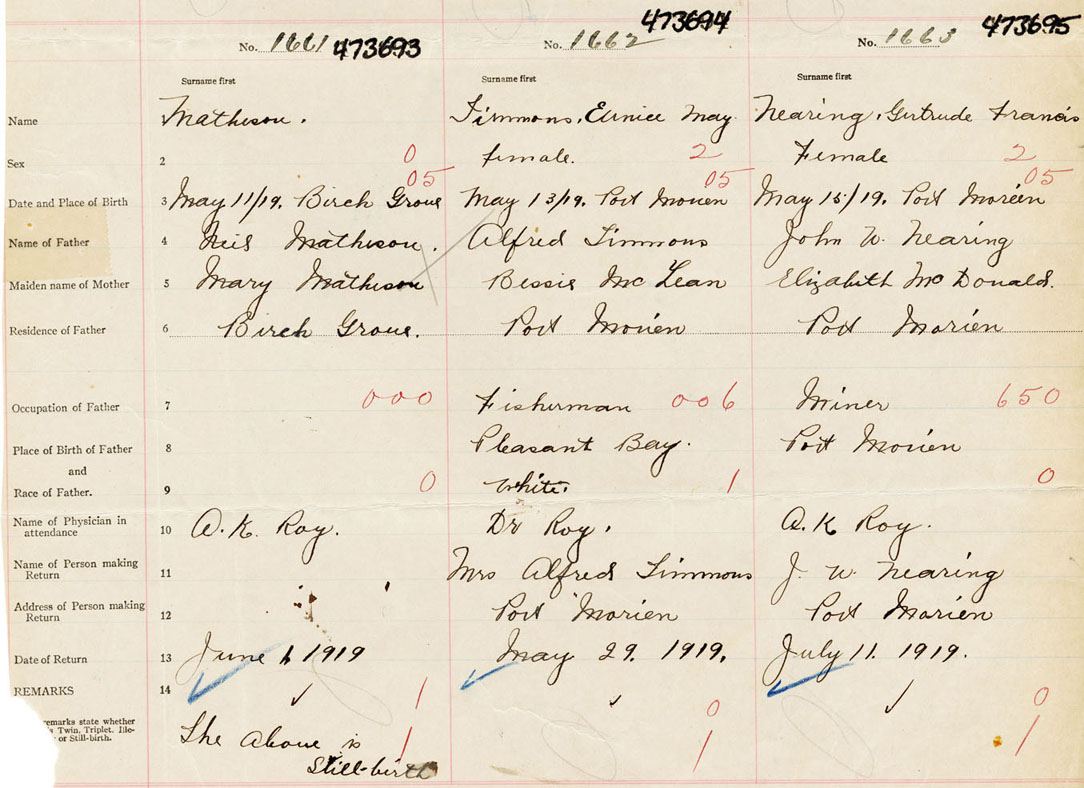 473693 473694 473695
No. 1661 No. 1662 No. 1663
Surname first Surname first Surname first
Name Matheson. Timmons, Eunice May Nearing, Gertrude Francis
Sex 2 0 female. 2 Female 2
05 05 05
Date and Place of Birth 3 May 11/19. Birch Grove May 13/19. Port Morien May 15/19. Port Morien
Name of Father 4 Neil Matheson. Alfred Timmons John W. Nearing
Maiden name of Mother 5 Mary Matheson Bessie McLean Elizabeth McDonald.
Residence of Father 6 Birch Grove. Port Morien Port Morien
Occupation of Father 7 000 Fisherman 006 Miner 650
Place of Birth of Father 8 Pleasant Bay. Port Morien
and
Race of Father. 9 0 White. 1 0
Name of Physician in
attendance 10 A. K. Roy. Dr Roy. A. K Roy.
Name of Person making
Return 11 Mrs Alfred Timmons J. W. Nearing
Address of Person making
Return 12 Port Morien Port Morien
Date of Return 13 June 1 1919 May 29. 1919. July 11. 1919.
REMARKS 14 1 0 0
remarks state whether
Twin, Triplet. Ille-
or Still-birth.
The above is 1 1 1
Still-birth